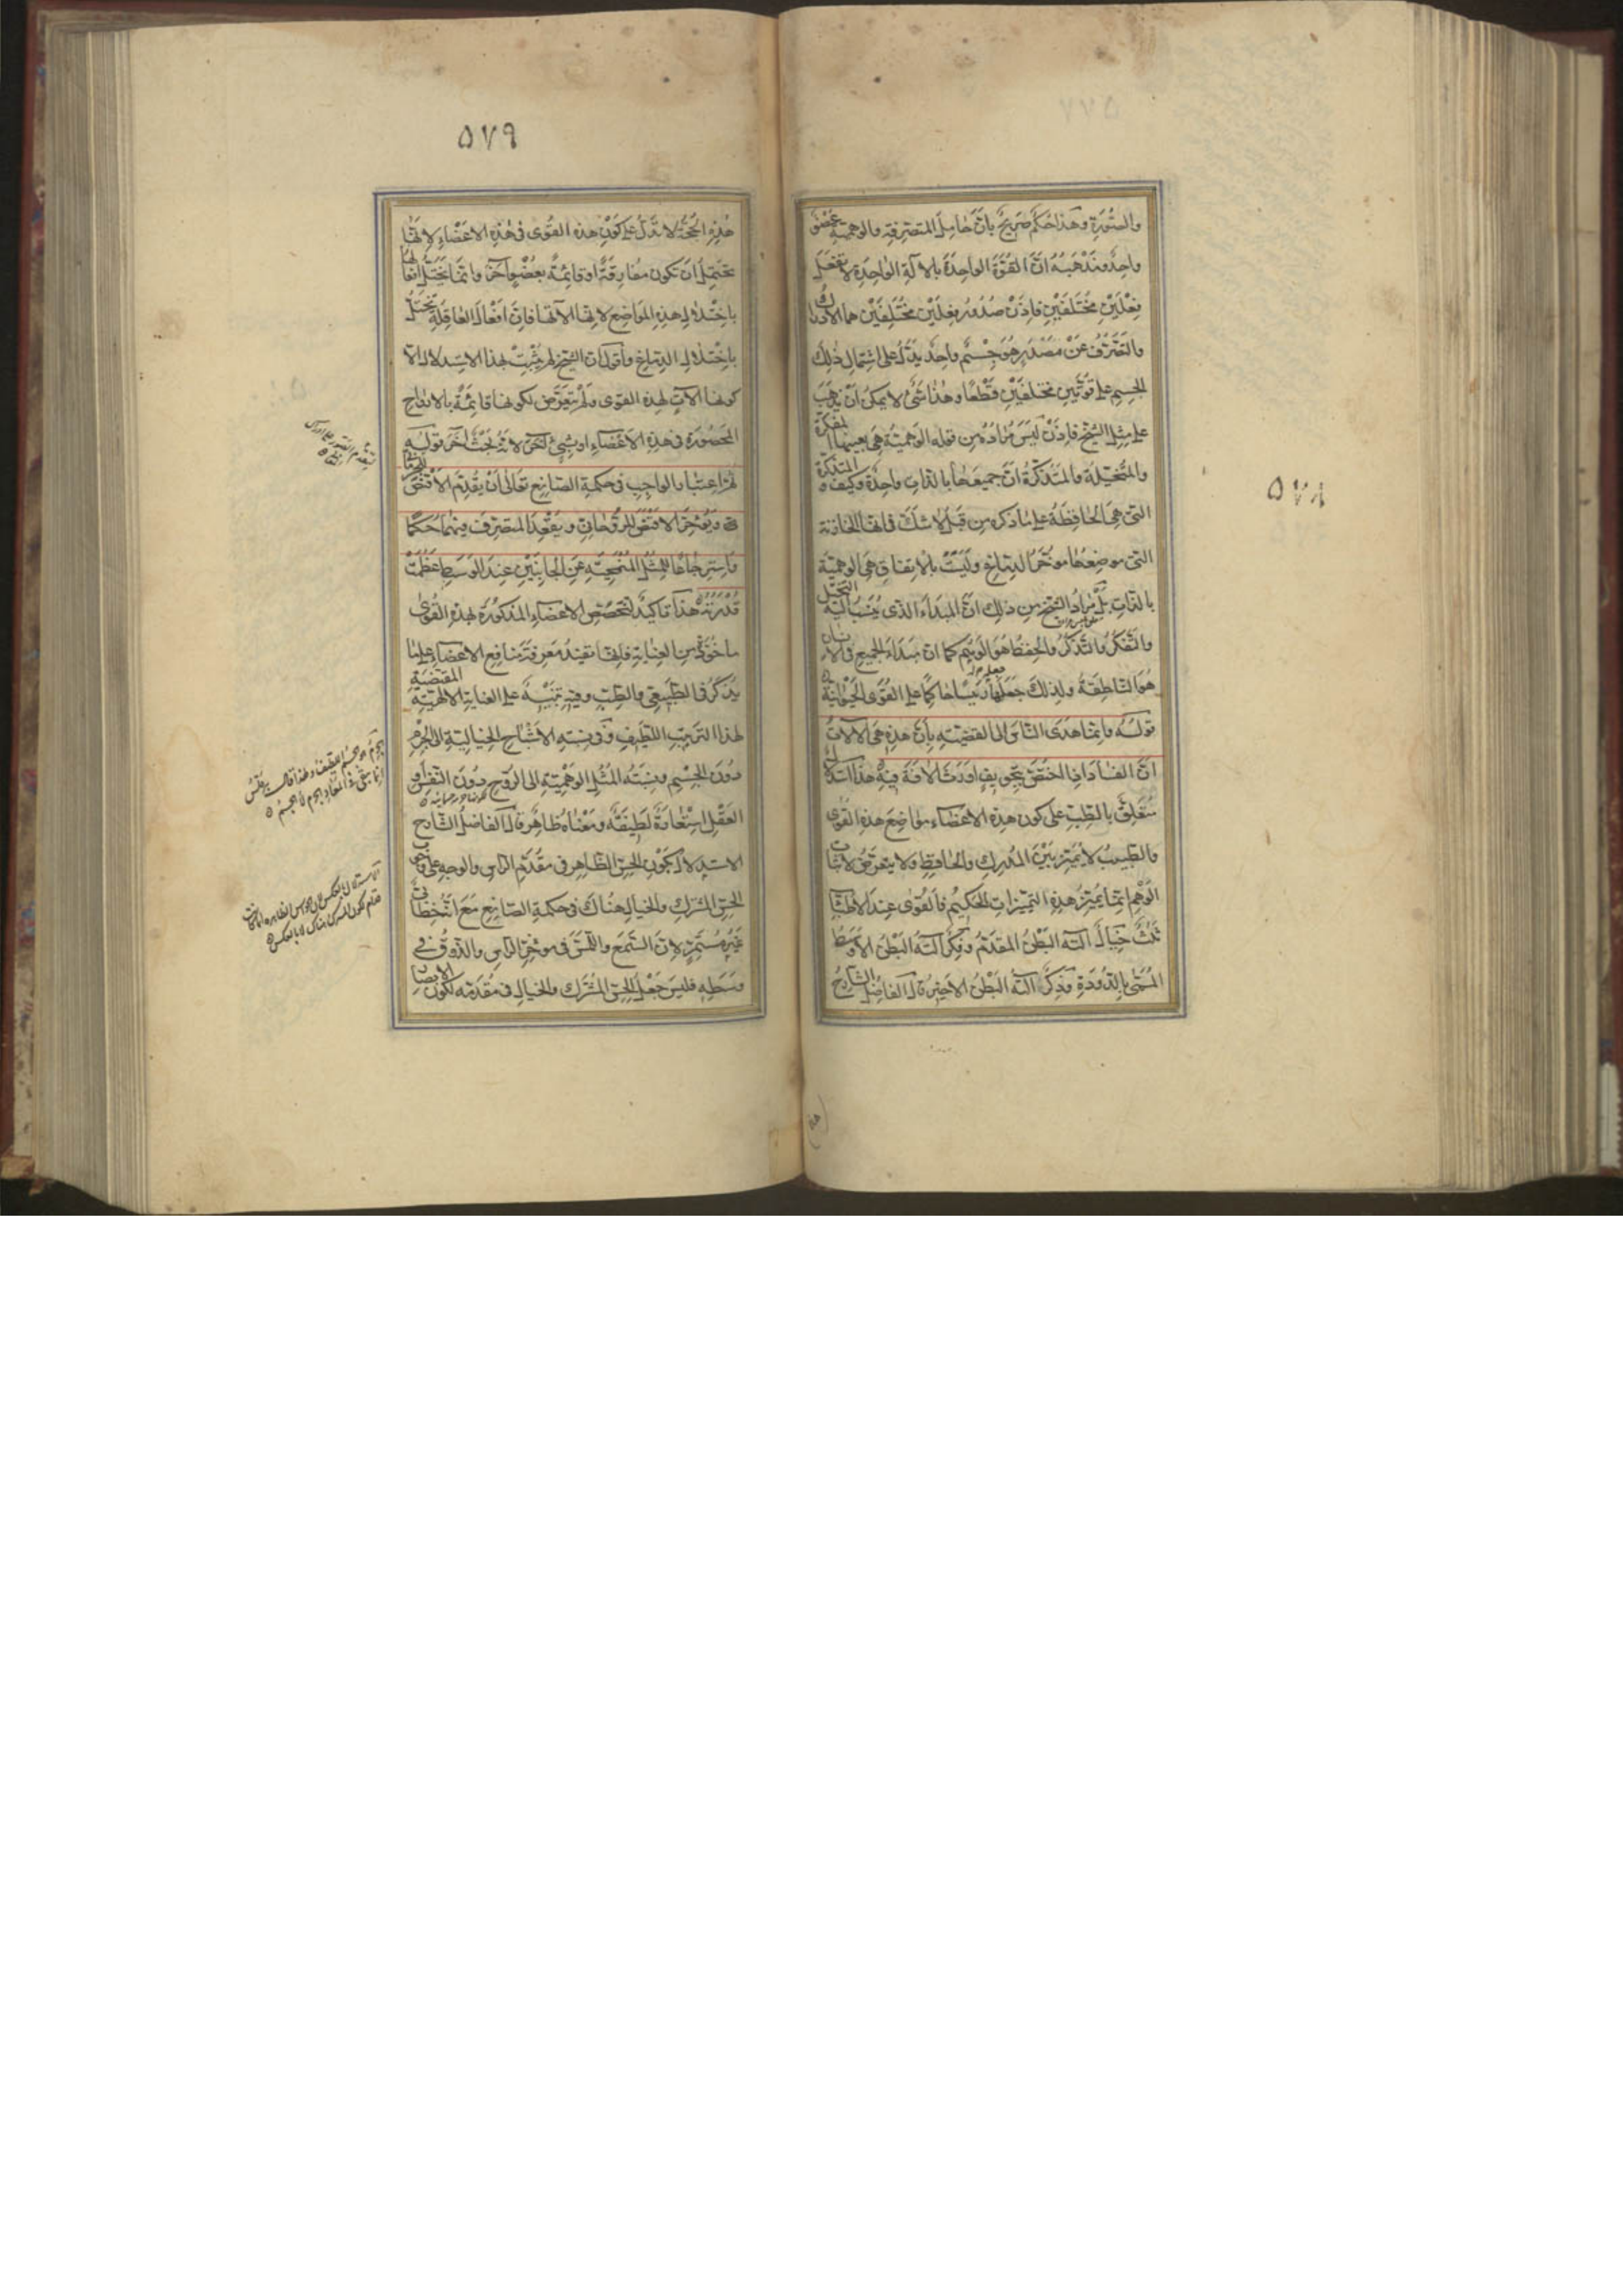 ٥٧٨
والصورة وهذا حكم صريح بان حامل المتصرفة والوهمية عضو
واحد ومذهبه ان القوة الواحدة بالآلة الواحدة لا تفعل
فعلين مختلفين فاذن صدور فعلين مختلفين هما الادراك
والتصرف عن مصدر هو جسم واحد يدل على اشتمال ذلك
الجسم على قوتين مختلفتين قطعا وهذا شئ لا يمكن ان يذهب
على مثل الشيخ فاذن ليس مراده من قوله الوهمية هي بعينها المفكرة
والمتخيلة والمتذكرة ان جميعها بالذات واحدة وكيف والمتذكرة
التي هي الحافظة على ما ذكره من قبل لا شك في انها الخازنة
التي موضعها مؤخر الدماغ وليست بالاتفاق هي الوهمية
بالذات بل مراد الشيخ من ذلك ان المبدأ الذي ينسب اليه التخيل
والتفكر والتذكر والحفظ هو الوهم كما ان مبدأ الجميع في الانسان
هو الناطقة ولذلك جعلها رئيسا حاكما على القوى الحيوانية
قوله وانما هدى الناس الى القضية بان هذه هي الآلات
ان الفساد اذا اختص بتجويف اورث الآفة فيه هذا استدلال
متعلق بالطب على كون هذه الاعضاء مواضع هذه القوى
والطبيب لا يميز بين المدرك والحافظ ولا يتعرض لاثبات
الوهم انما يميز هذه التميزات الحكيم فالقوى عند الاطباء
ثلث خيال آلته البطن المقدم وفكر آلته البطن الاوسط
المسمى بالدودة وذكر آلته البطن الاخير قال الفاضل الشارح
٥٧٩
هذه الحجة لا تدل على كون هذه القوى في هذه الاعضاء لانها
تحتمل ان تكون مفارقة او قائمة بعضو آخر وانما يختل افعالها
باختلال هذه المواضع لانها آلاتها فان افعال العاقلة تختل
باختلال الدماغ واقول ان الشيخ لم يثبت بهذا الاستدلال الا
كونها آلات لهذه القوى ولم يتعرض لكونها قائمة بالارواح
المحصورة في هذه الاعضاء او بشئ آخر لانه بحث آخر قوله
ثم اعتبار الواجب في حكمة الصانع تعالى ان يقدم الاقنص للجرمانى
ويؤخر الاقنص للروحانى ويقعد المتصرف فيهما حكما
واسترجاعا للمثل المنمحية عن الجانبين عند الوسط عظمت
قدرته هذا تاكيد لتخصص الاعضاء المذكورة لهذه القوى
ماخوذ من العناية فانها تفيد معرفة منافع الاعضاء على ما
يذكر في الطبيعي والطب وفيه تنبيه على العناية الالهية المقتضية
لهذا الترتيب اللطيف وفي نسبته الاشباح الخيالية الى الجرم
دون الجسم ونسبته المثل الوهمية الى الروح دون النفس او
العقل استعارة لطيفة ومعناه ظاهر قال الفاضل الشارح
الاستدلال بكون الحس الظاهر في مقدم الراس والوجه على وجوب
الحس المشترك والخيال هناك في حكمة الصانع مع انه خطابى
غير مستمر لان السمع واللمس في مؤخر الراس والذوق في
وسطه فليس جعل الحس المشترك والخيال في مقدمه لكون الابصار